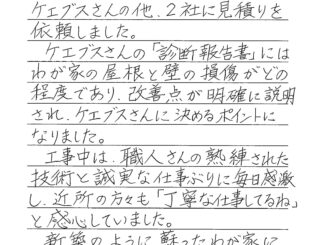 ケエブスさんの他、2社に見積りを
依頼しました。
ケエブスさんの「診断報告書」には
わが家の屋根と壁の損傷がどの
程度であり、改善点が明確に説明
され、ケエブスさんに決めるポイントに
なりました。
工事中は、職人さんの熟練された
技術と誠実な仕事ぶりに毎日感激
し、近所の方々も「丁寧な仕事してるね」
と感心していました。
新築のように蘇ったわが家に